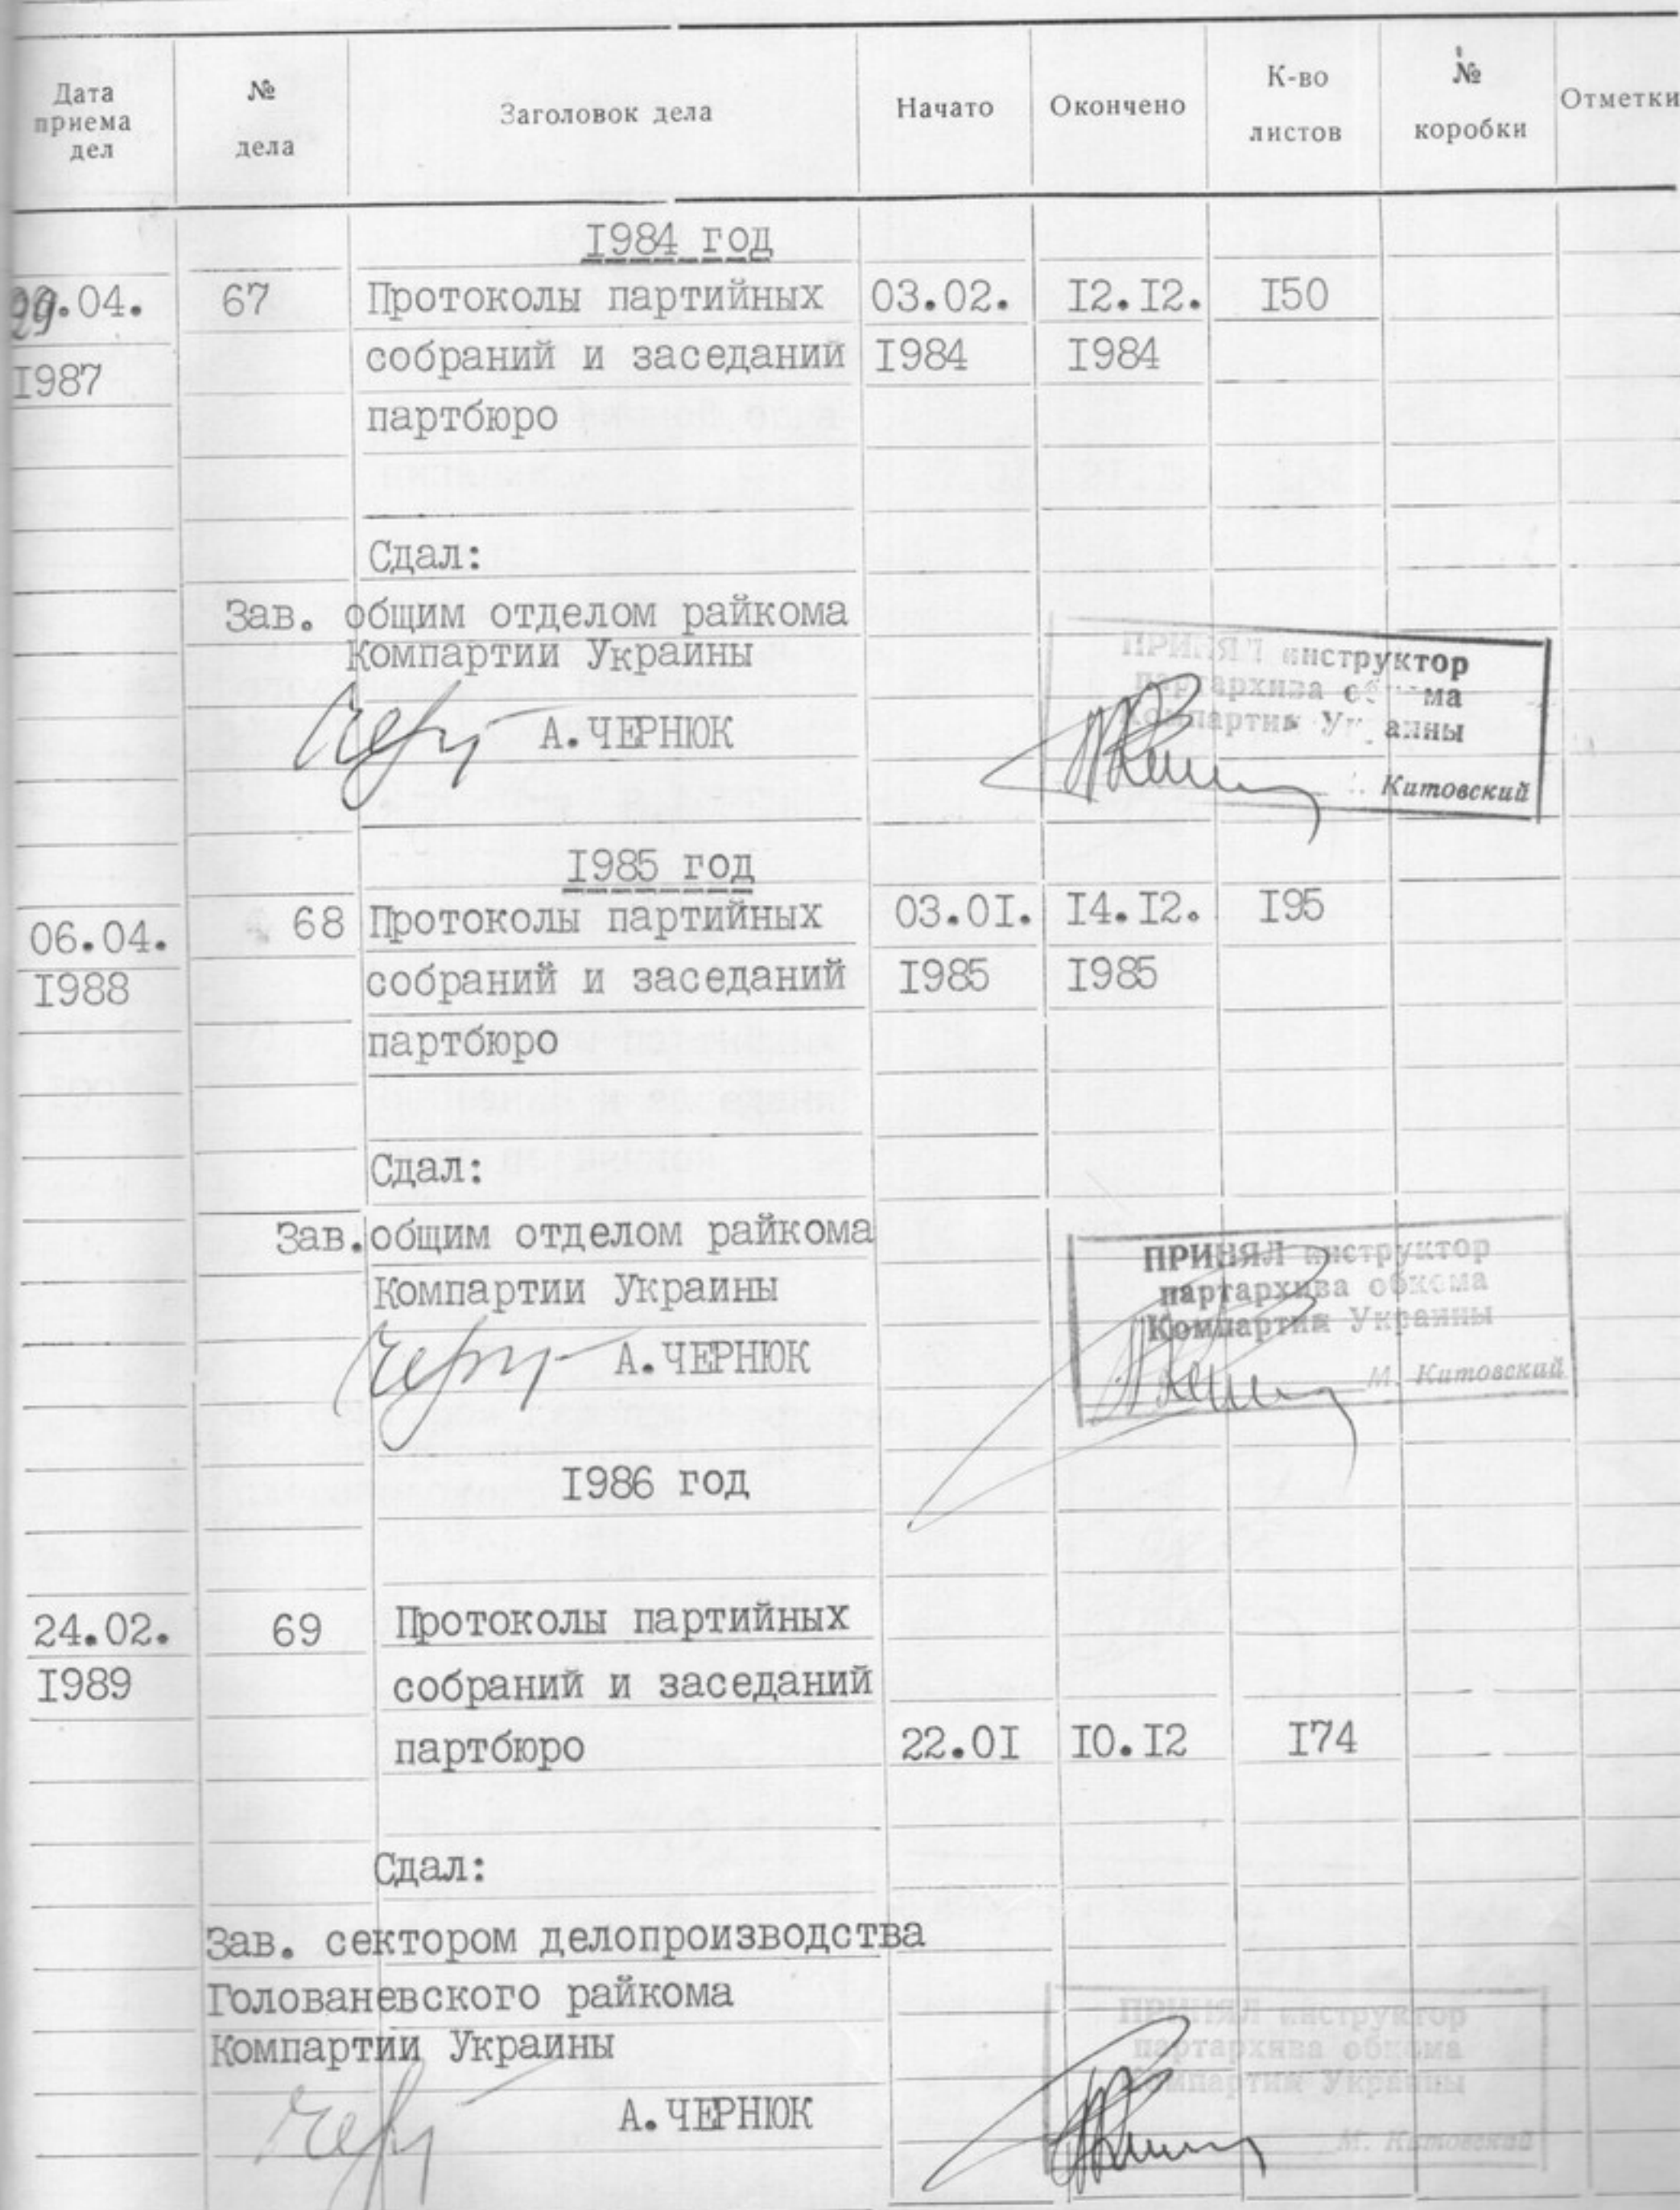 Дата приема дел	№ дела	Заголовок дела	Начато	Окончено	К-во листов	№ коробки	Отметки
1984 год
.04. 67 Протоколы партийных 03.02. 12.12. 150
1987 собраний и заседаний 1984 1984
партбюро
Сдал:
Зав. общим отделом райкома
Компартии Украины
А.ЧЕРНЮК
ПРИНЯЛ инструктор
партархива обкома
Компартии Украины
Китовский
1985 год
06.04. 68 Протоколы партийных 03.01. 14.12. 195
1988 собраний и заседаний 1985 1985
партбюро
Сдал:
Зав. общим отделом райкома
Компартии Украины
А.ЧЕРНЮК
ПРИНЯЛ инструктор
партархива обкома
Компартии Украины
М. Китовский
1986 год
24.02. 69 Протоколы партийных
1989 собраний и заседаний
партбюро 22.01 10.12 174
Сдал:
Зав. сектором делопроизводства
Голованевского райкома
Компартии Украины
А.ЧЕРНЮК
ПРИНЯЛ инструктор
партархива обкома
Компартии Украины
М. Китовский